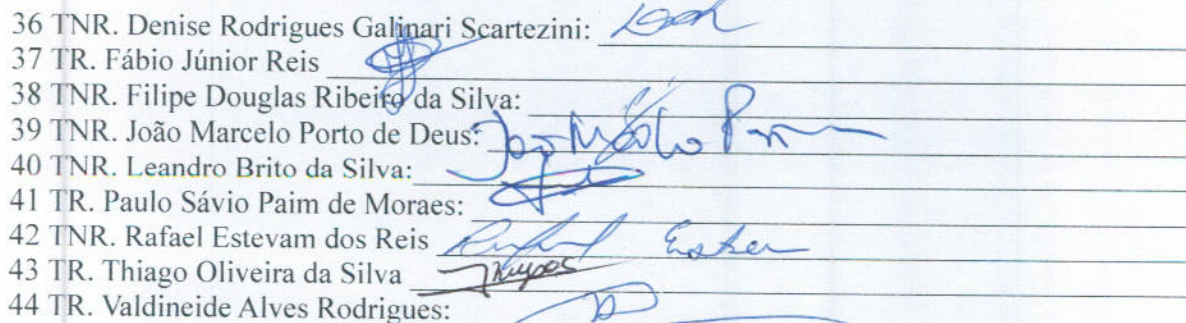 36 TNR. Denise Rodrigues Galinari Scartezini:
37 TR. Fábio Júnior Reis
38 TNR. Filipe Douglas Ribeiro da Silva:
39 TNR. João Marcelo Porto de Deus:
40 TNR. Leandro Brito da Silva:
41 TR. Paulo Sávio Paim de Moraes:
42 TNR. Rafael Estevam dos Reis
43 TR. Thiago Oliveira da Silva
44 TR. Valdineide Alves Rodrigues: